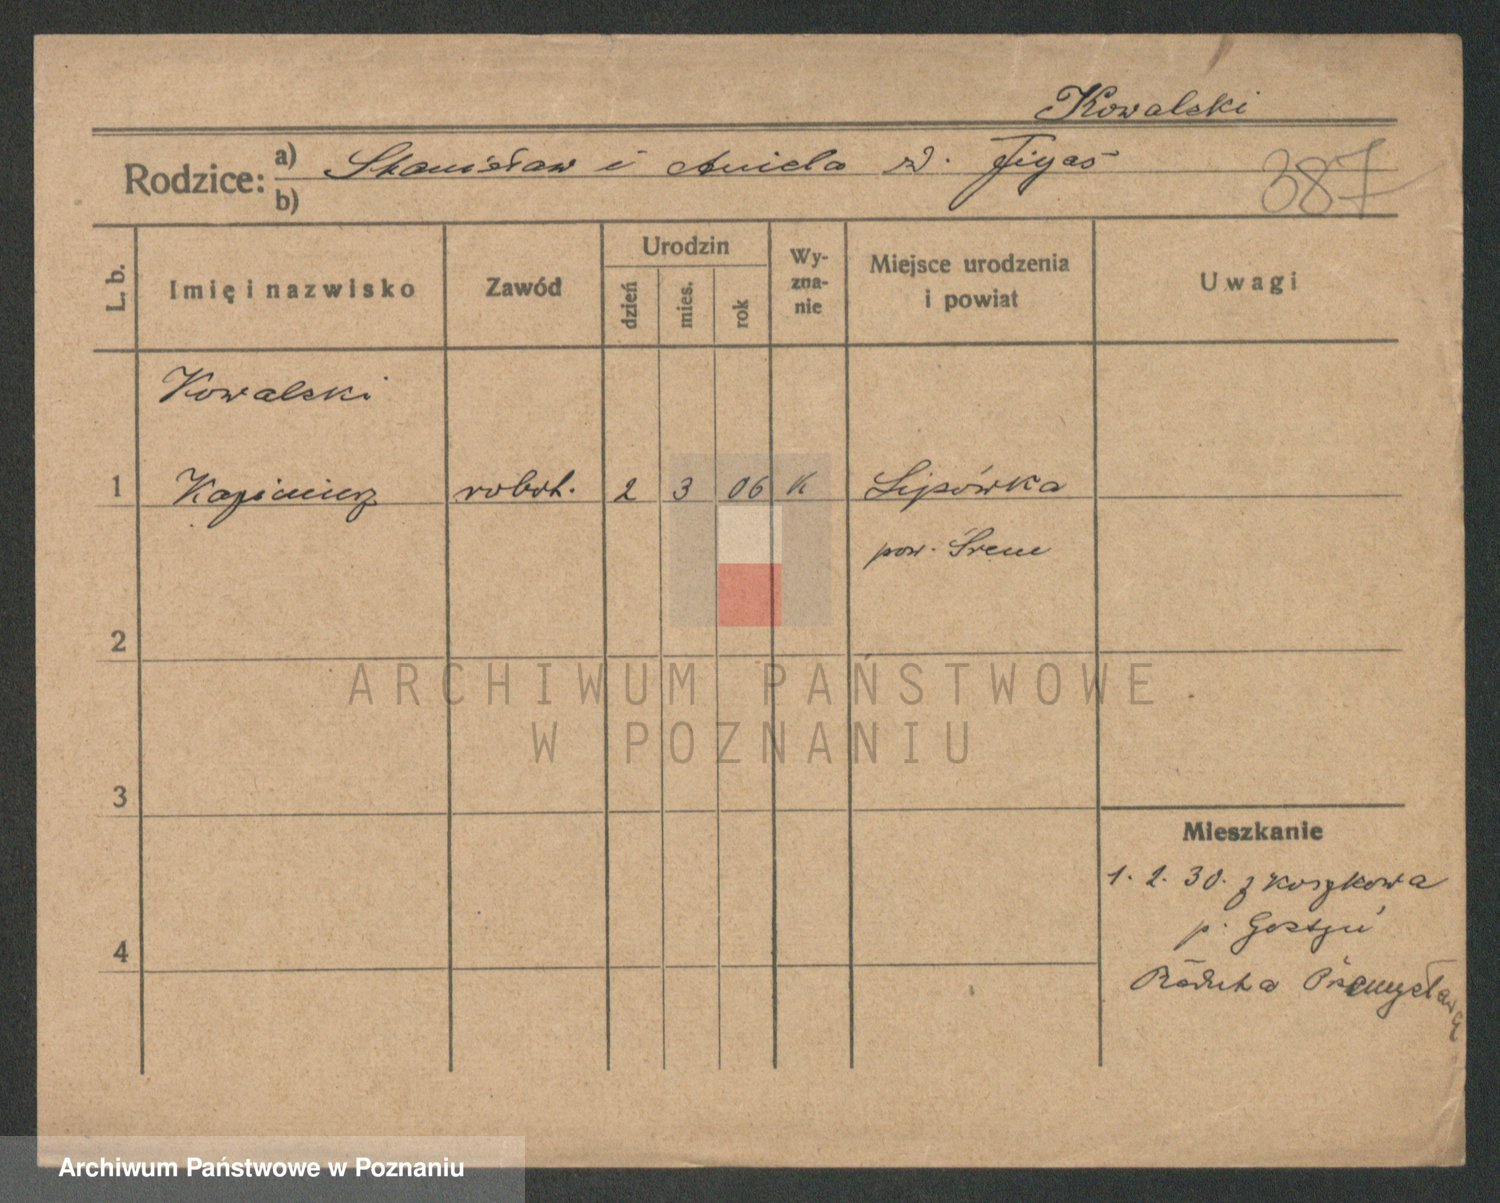 Kowalski
Rodzice: a) Stanisław i Aniela z d. Figaś
b)
387
L. b.
Imię i nazwisko
Zawód
Urodzin
dzień
mies.
rok
Wy-
zna-
nie
Miejsce urodzenia
i powiat
Uwagi
Kowalski
1 Kazimierz robot. 2 3 06 K Lipówka
pow. Śrem
2
3
4
Mieszkanie
1. 2. 30. z Koszkowa
p. Gostyń
ARCHIWUM PAŃSTWOWE
W POZNANIU
Archiwum Państwowe w Poznaniu